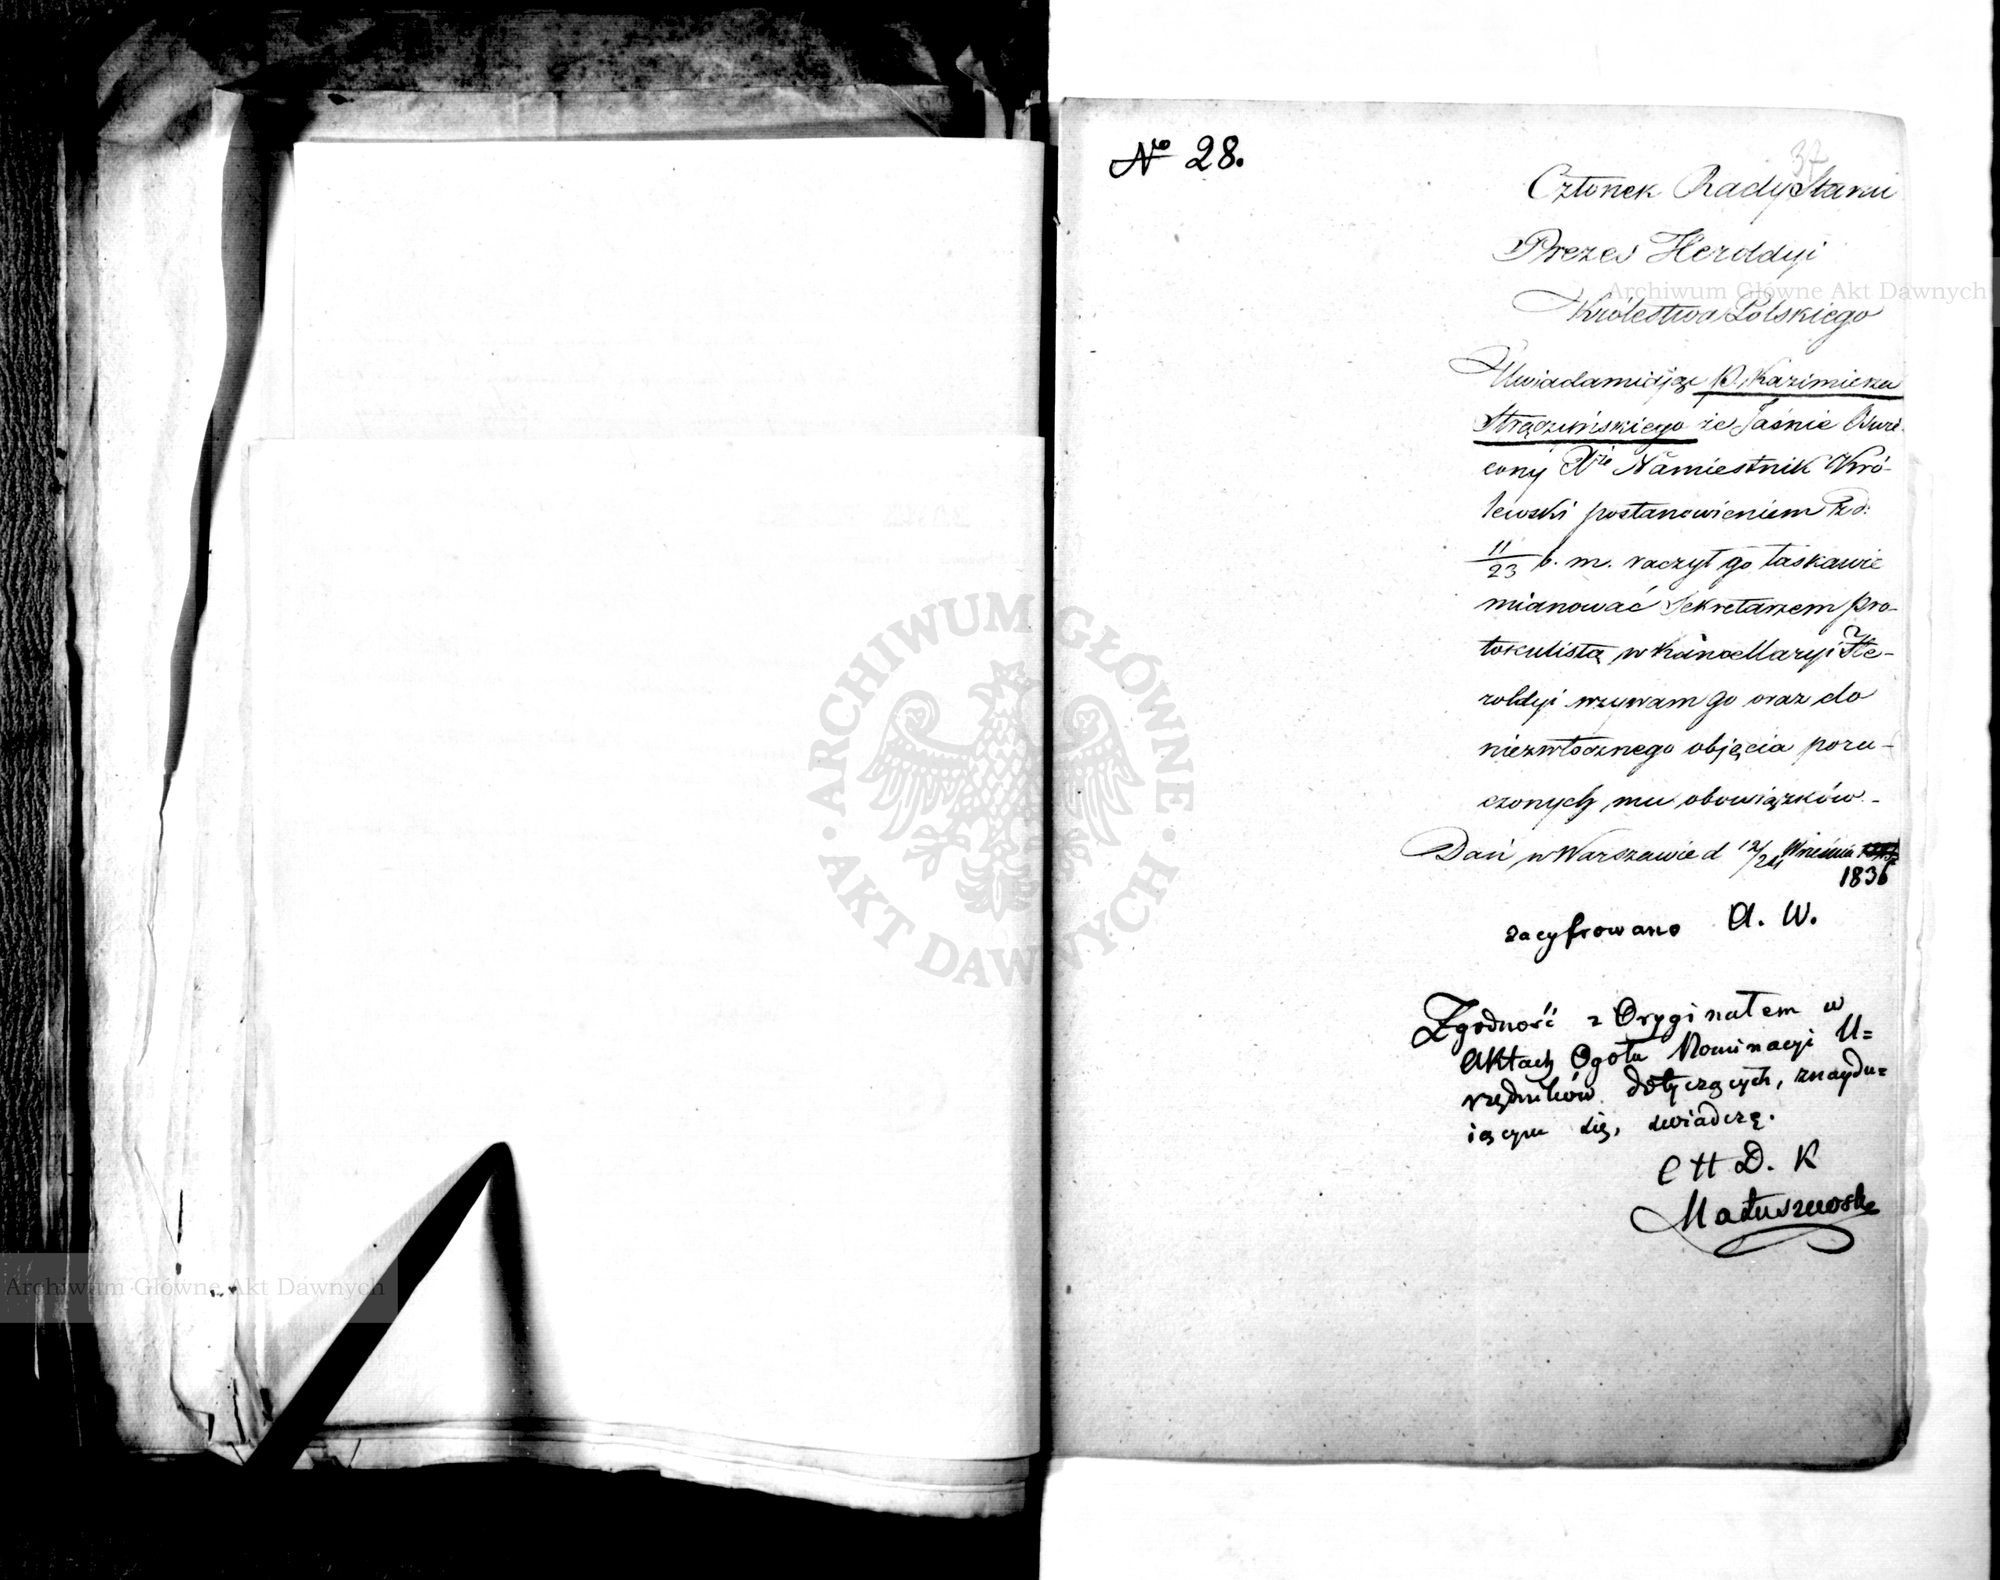 № 28.
37
Członek Rady Stanu
Prezes Heroldyi
Królestwa Polskiego
Uwiadamiając P. Kazimierza
Strączyńskiego że Jaśnie Oświe-
cony Xże Namiestnik Kró-
lewski postanowieniem z d:
11/23 b. m. raczył go łaskawie
mianować Sekretarzem pro-
tokulistą w Kancellaryi He-
roldyi wzywam go oraz do
niezwłocznego objęcia poru-
czonych mu obowiązków. -
Dań w Warszawie d 12/24 Września
1836
zacyfrowano A. W.
Zgodność z Oryginałem w
Aktach Ogółu Nominacyi U=
rzędników dotyczących, znaydu=
iącym się, świadczę.
Matuszewski
ARCHIWUM GŁÓWNE
AKT DAWNYCH
Archiwum Główne Akt Dawnych
Archiwum Główne Akt Dawnych